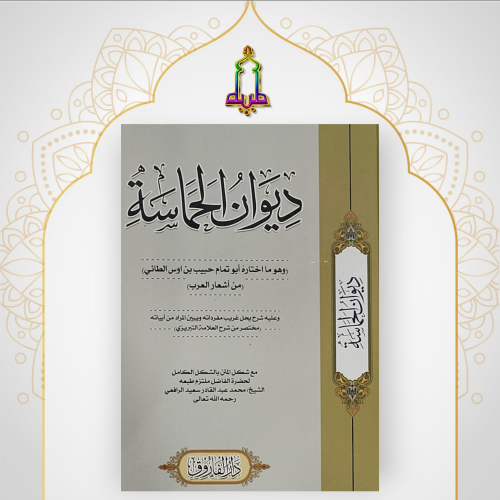 طيبه
ديوان الحماسة
(وهو ما اختاره أبو تمام حبيب بن اوس الطائي)
(من أشعار العرب)
وعليه شرح يحل غريب مفرداته ويبين المراد من أبياته
(مختصر من شرح العلامة التبريزي)
مع شكل المتن بالشكل الكامل
لحضرة الفاضل ملتزم طبعه
الشيخ/ محمد عبد القادر سعيد الرافعي
رحمه الله تعالى
دار الفاروق
ديوان الحماسة